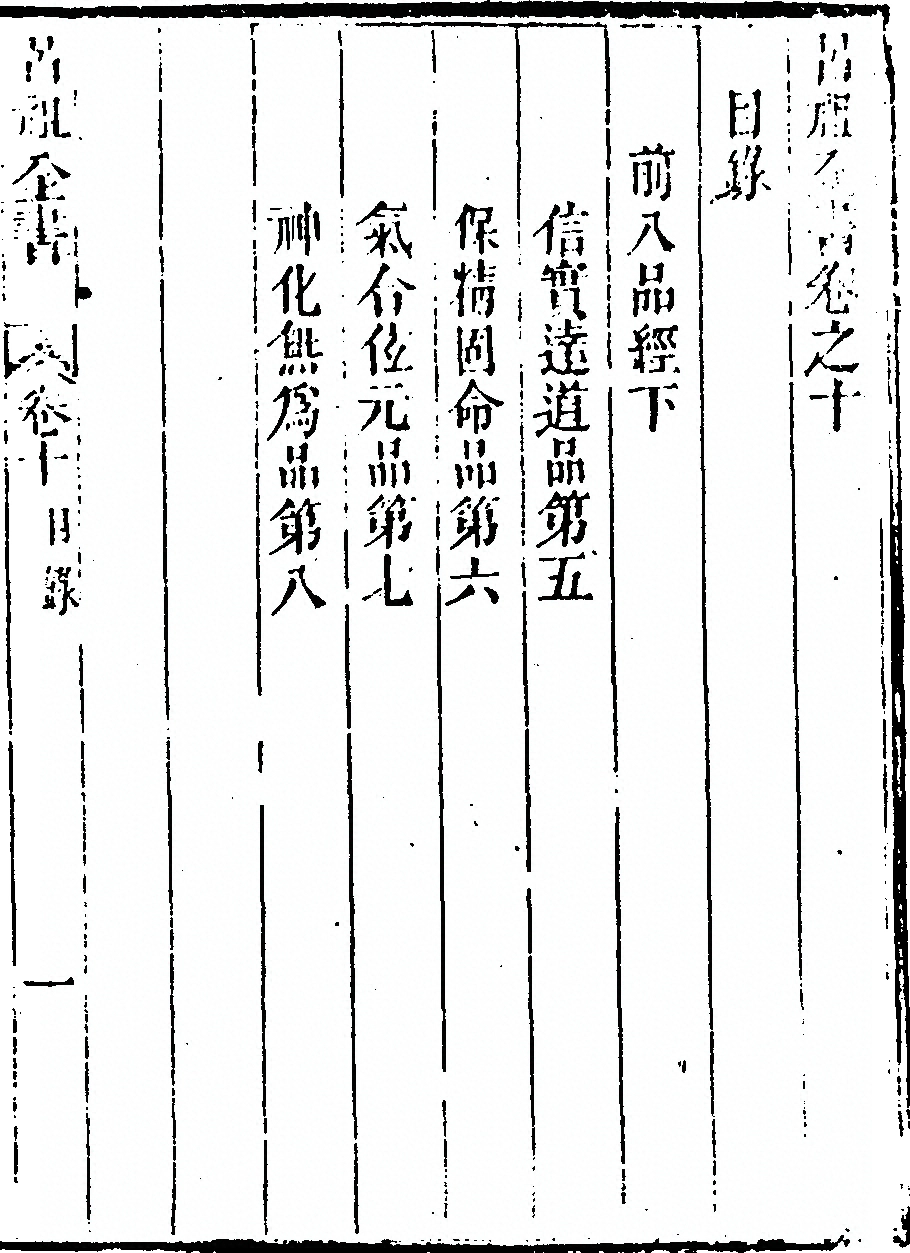 呂祖全書卷之十
目錄
前八品經下
信實達道品第五
保精固命品第六
氣合伭元品第七
神化無爲品第八
呂祖全書 卷十 目錄 一